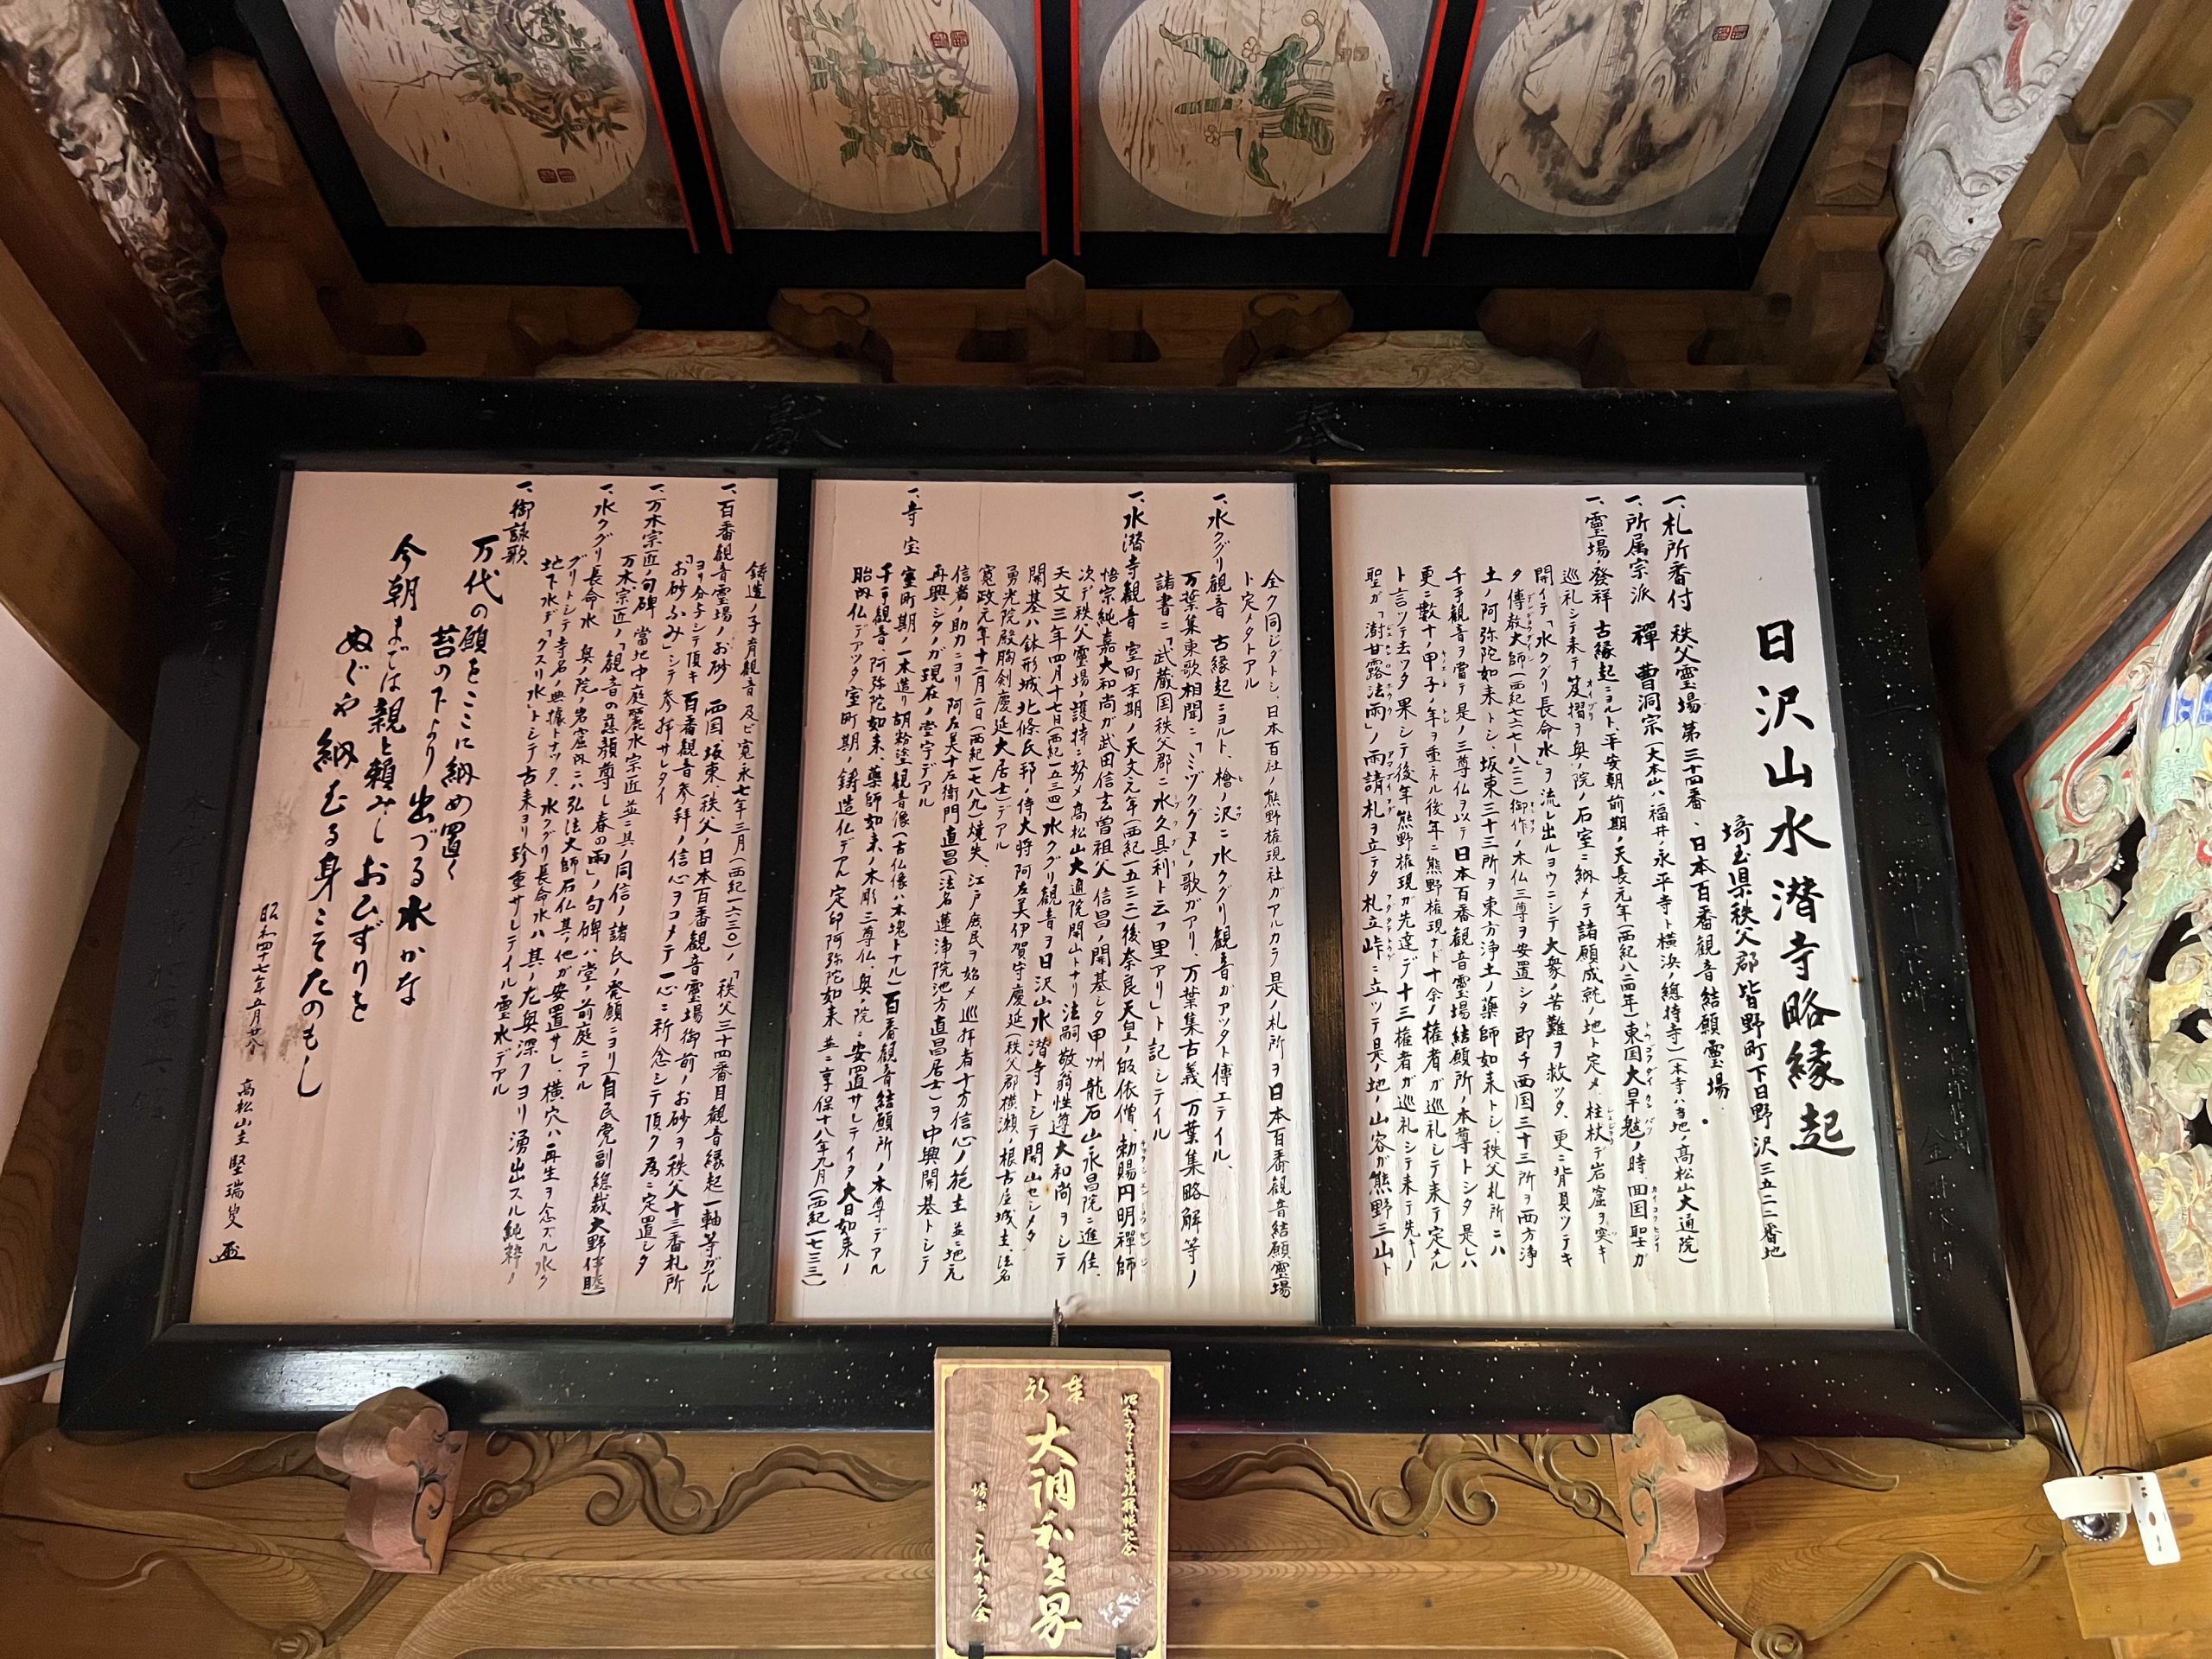 奉献
日沢山水潜寺略縁起
埼玉県秩父郡皆野町下日野沢三五二二番地
一、札所番付 秩父霊場第三十四番、日本百番観音結願霊場.
一、所属宗派 禪 曹洞宗(大本山ハ福井ノ永平寺ト横浜ノ總持寺)(本寺ハ当地ノ高松山大通院)
一、霊場ノ發祥 古縁起ニヨルト、平安朝前期ノ天長元年(西紀八二四年)東国大旱魃ノ時、回国聖ガ
巡礼シテ来テ笈摺ヲ奥ノ院ノ石室ニ納メテ諸願成就ノ地ト定メ、柱杖デ岩窟ヲ突キ
開イテ「水クグリ長命水」ヲ流シ出ルヨウニシテ大衆ノ苦難ヲ救ツタ、更ニ背負ツテキ
タ傳教大師(西紀七六七ー八二二)御作ノ木仏三尊ヲ安置シタ 即チ西国三十三所ヲ西方浄
土ノ阿弥陀如来トシ、坂東三十三所ヲ東方浄土ノ藥師如来トシ、秩父札所ニハ
千手観音ヲ當テ是ノ三尊仏ヲ以テ日本百番観音霊場結願所ノ本尊トシタ 是ハ
更ニ數十ノ甲子ノ年ヲ重ネル後年ニ熊野権現ナド十余ノ権者ガ巡礼シテ来テ定メル
ト言ツテ去ツタ果シテ後年熊野権現ガ先達デ十三権者ガ巡礼シテ来テ先キノ
聖ガ「澍甘露法雨」ノ雨請札ヲ立テタ札立峠ニ立ツテ是ノ地ノ山容ガ熊野三山ト
全ク同ジダトシ、日本百社ノ熊野権現社ガアルカラ是ノ札所ヲ日本百番観音結願霊場
ト定メタトアル
一、水クグリ観音 古縁起ニヨルト、檜ノ沢ニ水クグリ観音ガアツタト傳エテイル、
万葉集東歌相聞ニ「ミヅクグヌ」ノ歌ガアリ、万葉集古義 万葉集略解等ノ
諸書ニ「武蔵国秩父郡ニ水久具利ト云フ里アリ」ト記シテイル
一、水潜寺観音 室町末期ノ天文元年(西紀一五三二)後奈良天皇ノ皈依僧、勅賜円明禪師
悟宗純嘉大和尚ガ武田信玄曽祖父信昌ノ開基シタ甲州龍石山永昌院ニ進住、
次デ秩父霊場ノ護持ニ努メ高松山大通院開山トナリ法嗣敬翁性遵大和尚ヲシテ
天文三年四月十七日(西紀一五三四)水クグリ観音ヲ日沢山水潜寺トシテ開山セシメタ
開基ハ鉢形城北條氏邦ノ侍大将阿左美伊賀守慶延(秩父郡横瀬ノ根古屋城主、法名
勇光院殿胸剣慶延大居士)デアル
寛政元年十二月二日(西紀一七八九)焼失、江戸庶民ヲ始メ巡拝者十方信心ノ施主並ニ地元
信者ノ助力ニヨリ阿左美十左衛門直昌(法名蓮浄院池方直昌居士)ヲ中興開基トシテ
再興シタノガ現在ノ堂宇デアル
一、寺宝 室町期ノ一木造リ胡粉塗観音像(古仏像ハ木塊トナル)百番観音結願所ノ本尊デアル
千手観音、阿弥陀如来、藥師如来ノ木彫三尊仏、奥ノ院ニ安置サレテイタ大日如来ノ
胎内仏デアツタ室町期ノ鋳造仏デアル定印阿弥陀如来 並ニ享保十八年九月(西紀一七三三)
鋳造ノ子育観音及ビ寛永七年三月(西紀一六三〇)ノ「秩父三十四番目観音縁起一軸等ガアル
一、百番観音霊場ノお砂 西国、坂東、秩父ノ日本百番観音霊場御前ノお砂ヲ秩父十三番札所
ヨリ分与シテ頂キ百番観音参拜ノ信心ヲコメテ一心ニ祈念シテ頂ク為ニ定置シタ
「お砂ふみ」シテ参拝サレタイ
一、万木宗匠ノ句碑 當地中庭麗水宗匠並ニ其ノ同信ノ諸氏ノ発願ニヨリ(自民党副総裁大野伴睦)
万木宗匠ノ「観音の慈顔尊し春の雨」ノ句碑ハ堂ノ前庭ニアル
一、水クグリ長命水 奥ノ院ノ岩窟内ニハ弘法大師石仏其ノ他ガ安置サレ、横穴ハ再生ヲ念ズル水ク
グリトシテ寺名ノ典據トナツタ、水クグリ長命水ハ其ノ左奥深クヨリ湧出スル純粋ノ
地下水デ「クスリ水」トシテ古来ヨリ珍重サレテイル霊水デアル
一、御詠歌
万代の願をここに納め置く
苔の下より出づる水かな
今朝までは親と頼みしおひずりを
ぬぐや納むる身こそたのもし
昭和四十七年五月廿八日 高松山主 堅瑞叟
大調和世界
埼玉 これから会